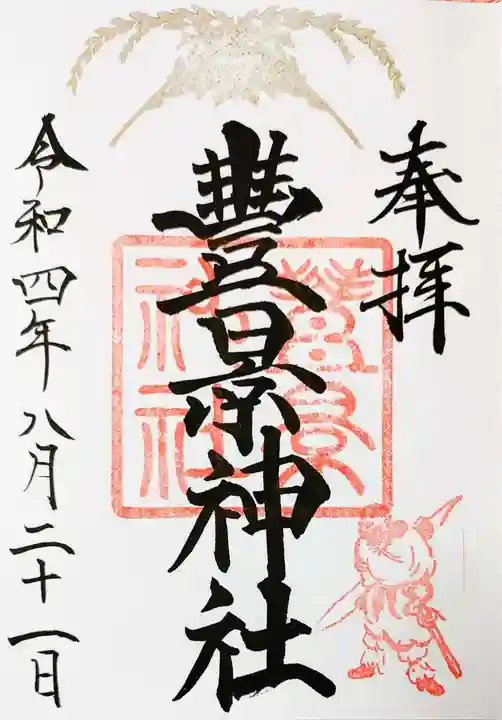 奉拝
豊景神社
令和四年八月二十一日
豊景
神社